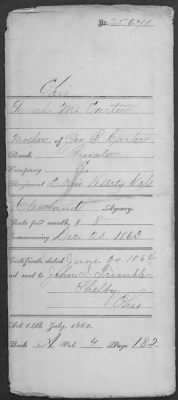 No. 25.641
Ohio
Sarah McCarter
Mother of Geo. S. Carter
Rank Private
Company G
Regiment 2
Agency.
Rate per month, $ 8
Commencing Dec 21 1863
Certificate dated June 24 1864
and sent to John S. Trimble
Shelby
Ohio
Act 14th July, 1862.
Book A Vol. 4 Page 182